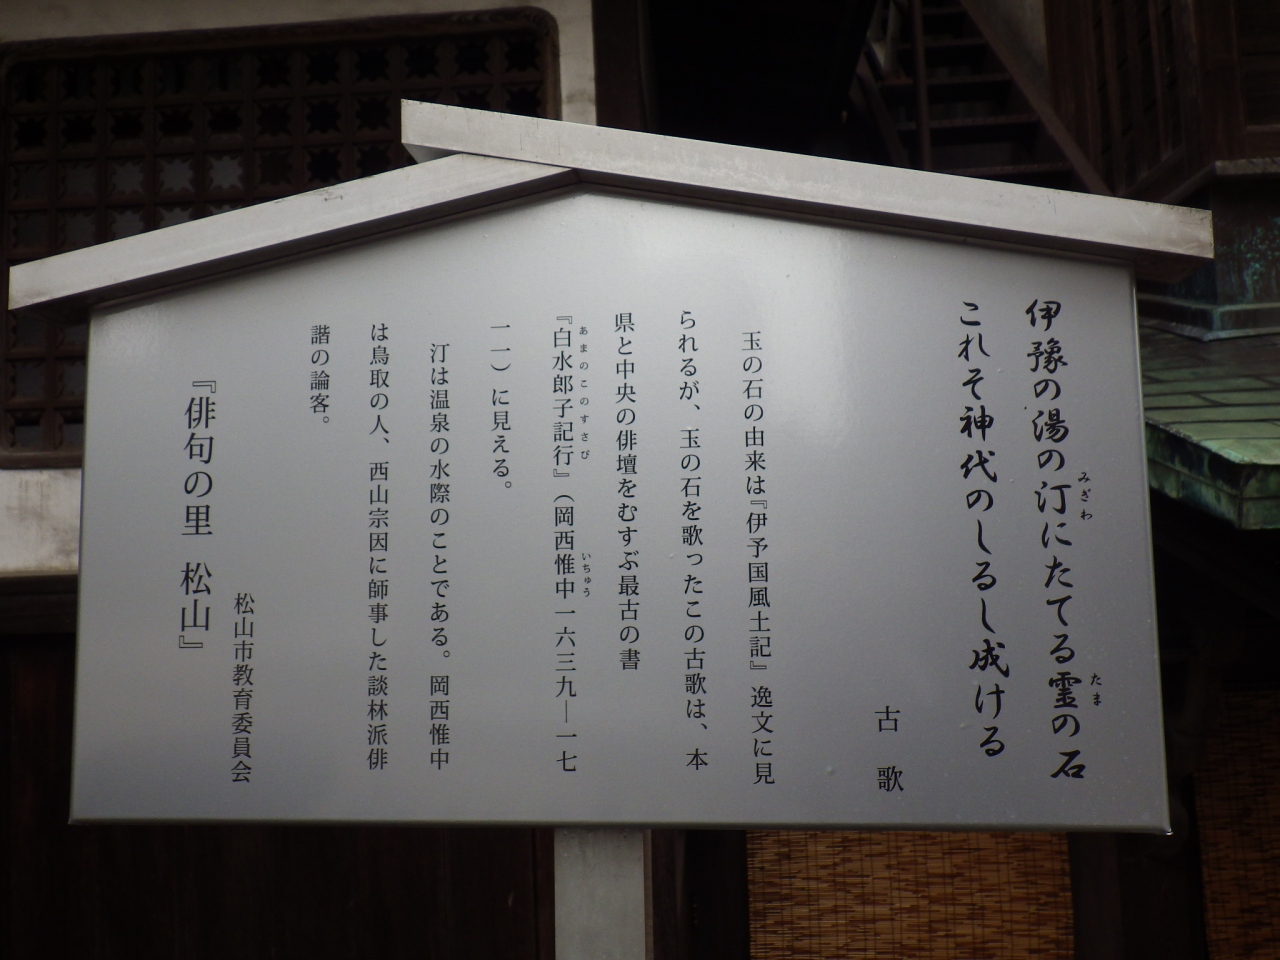 伊豫の湯の汀にたてる霊の石
みぎわ
たま
これそ神代のしるし成ける
古歌
玉の石の由来は『伊予国風土記』逸文に見
られるが、玉の石を歌ったこの古歌は、本
県と中央の俳壇をむすぶ最古の書
『白水郎子記行』（岡西惟中一六三九―一七
あまのこのすさび
いちゅう
一一）に見える。
汀は温泉の水際のことである。岡西惟中
は鳥取の人、西山宗因に師事した談林派俳
諧の論客。
松山市教育委員会
『俳句の里 松山』